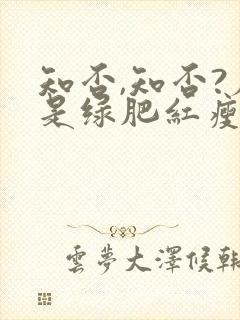 知否,知否?
是绿肥紅瘦
雲夢大澤候韩